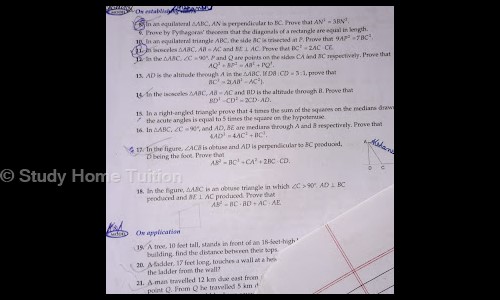 On establishing
8. In an equilateral △ABC, AN is perpendicular to BC. Prove that AN² = 3BN².
9. Prove by Pythagoras' theorem that the diagonals of a rectangle are equal in length.
10. In an equilateral triangle ABC, the side BC is trisected at P. Prove that 9AP² = 7BC².
11. In isosceles △ABC, AB = AC and BE ⊥ AC. Prove that BC² = 2AC · CE.
12. In the △ABC, ∠C = 90°, P and Q are points on the sides CA and BC respectively. Prove that
AQ² + BP² = AB² + PQ².
13. AD is the altitude through A in the △ABC. If DB : CD = 3 : 1, prove that
BC² = 2(AB² − AC²).
14. In the isosceles △ABC, AB = AC and BD is the altitude through B. Prove that
BD² − CD² = 2CD · AD.
15. In a right-angled triangle prove that 4 times the sum of the squares on the medians drawn
the acute angles is equal to 5 times the square on the hypotenuse.
16. In △ABC, ∠C = 90°, and AD, BE are medians through A and B respectively. Prove that
4AD² = 4AC² + BC².
17. In the figure, ∠ACB is obtuse and AD is perpendicular to BC produced,
D being the foot. Prove that
AB² = BC² + CA² + 2BC · CD.
D C
© Study Home Tuition
18. In the figure, △ABC is an obtuse triangle in which ∠C > 90°. AD ⊥ BC
produced and BE ⊥ AC produced. Prove that
AB² = BC · BD + AC · AE.
On application
19. A tree, 10 feet tall, stands in front of an 18-feet-high
building, find the distance between their tops.
20. A ladder, 17 feet long, touches a wall at a
the ladder from the wall?
21. A man travelled 12 km due east from
point Q. From Q he travelled 5 km